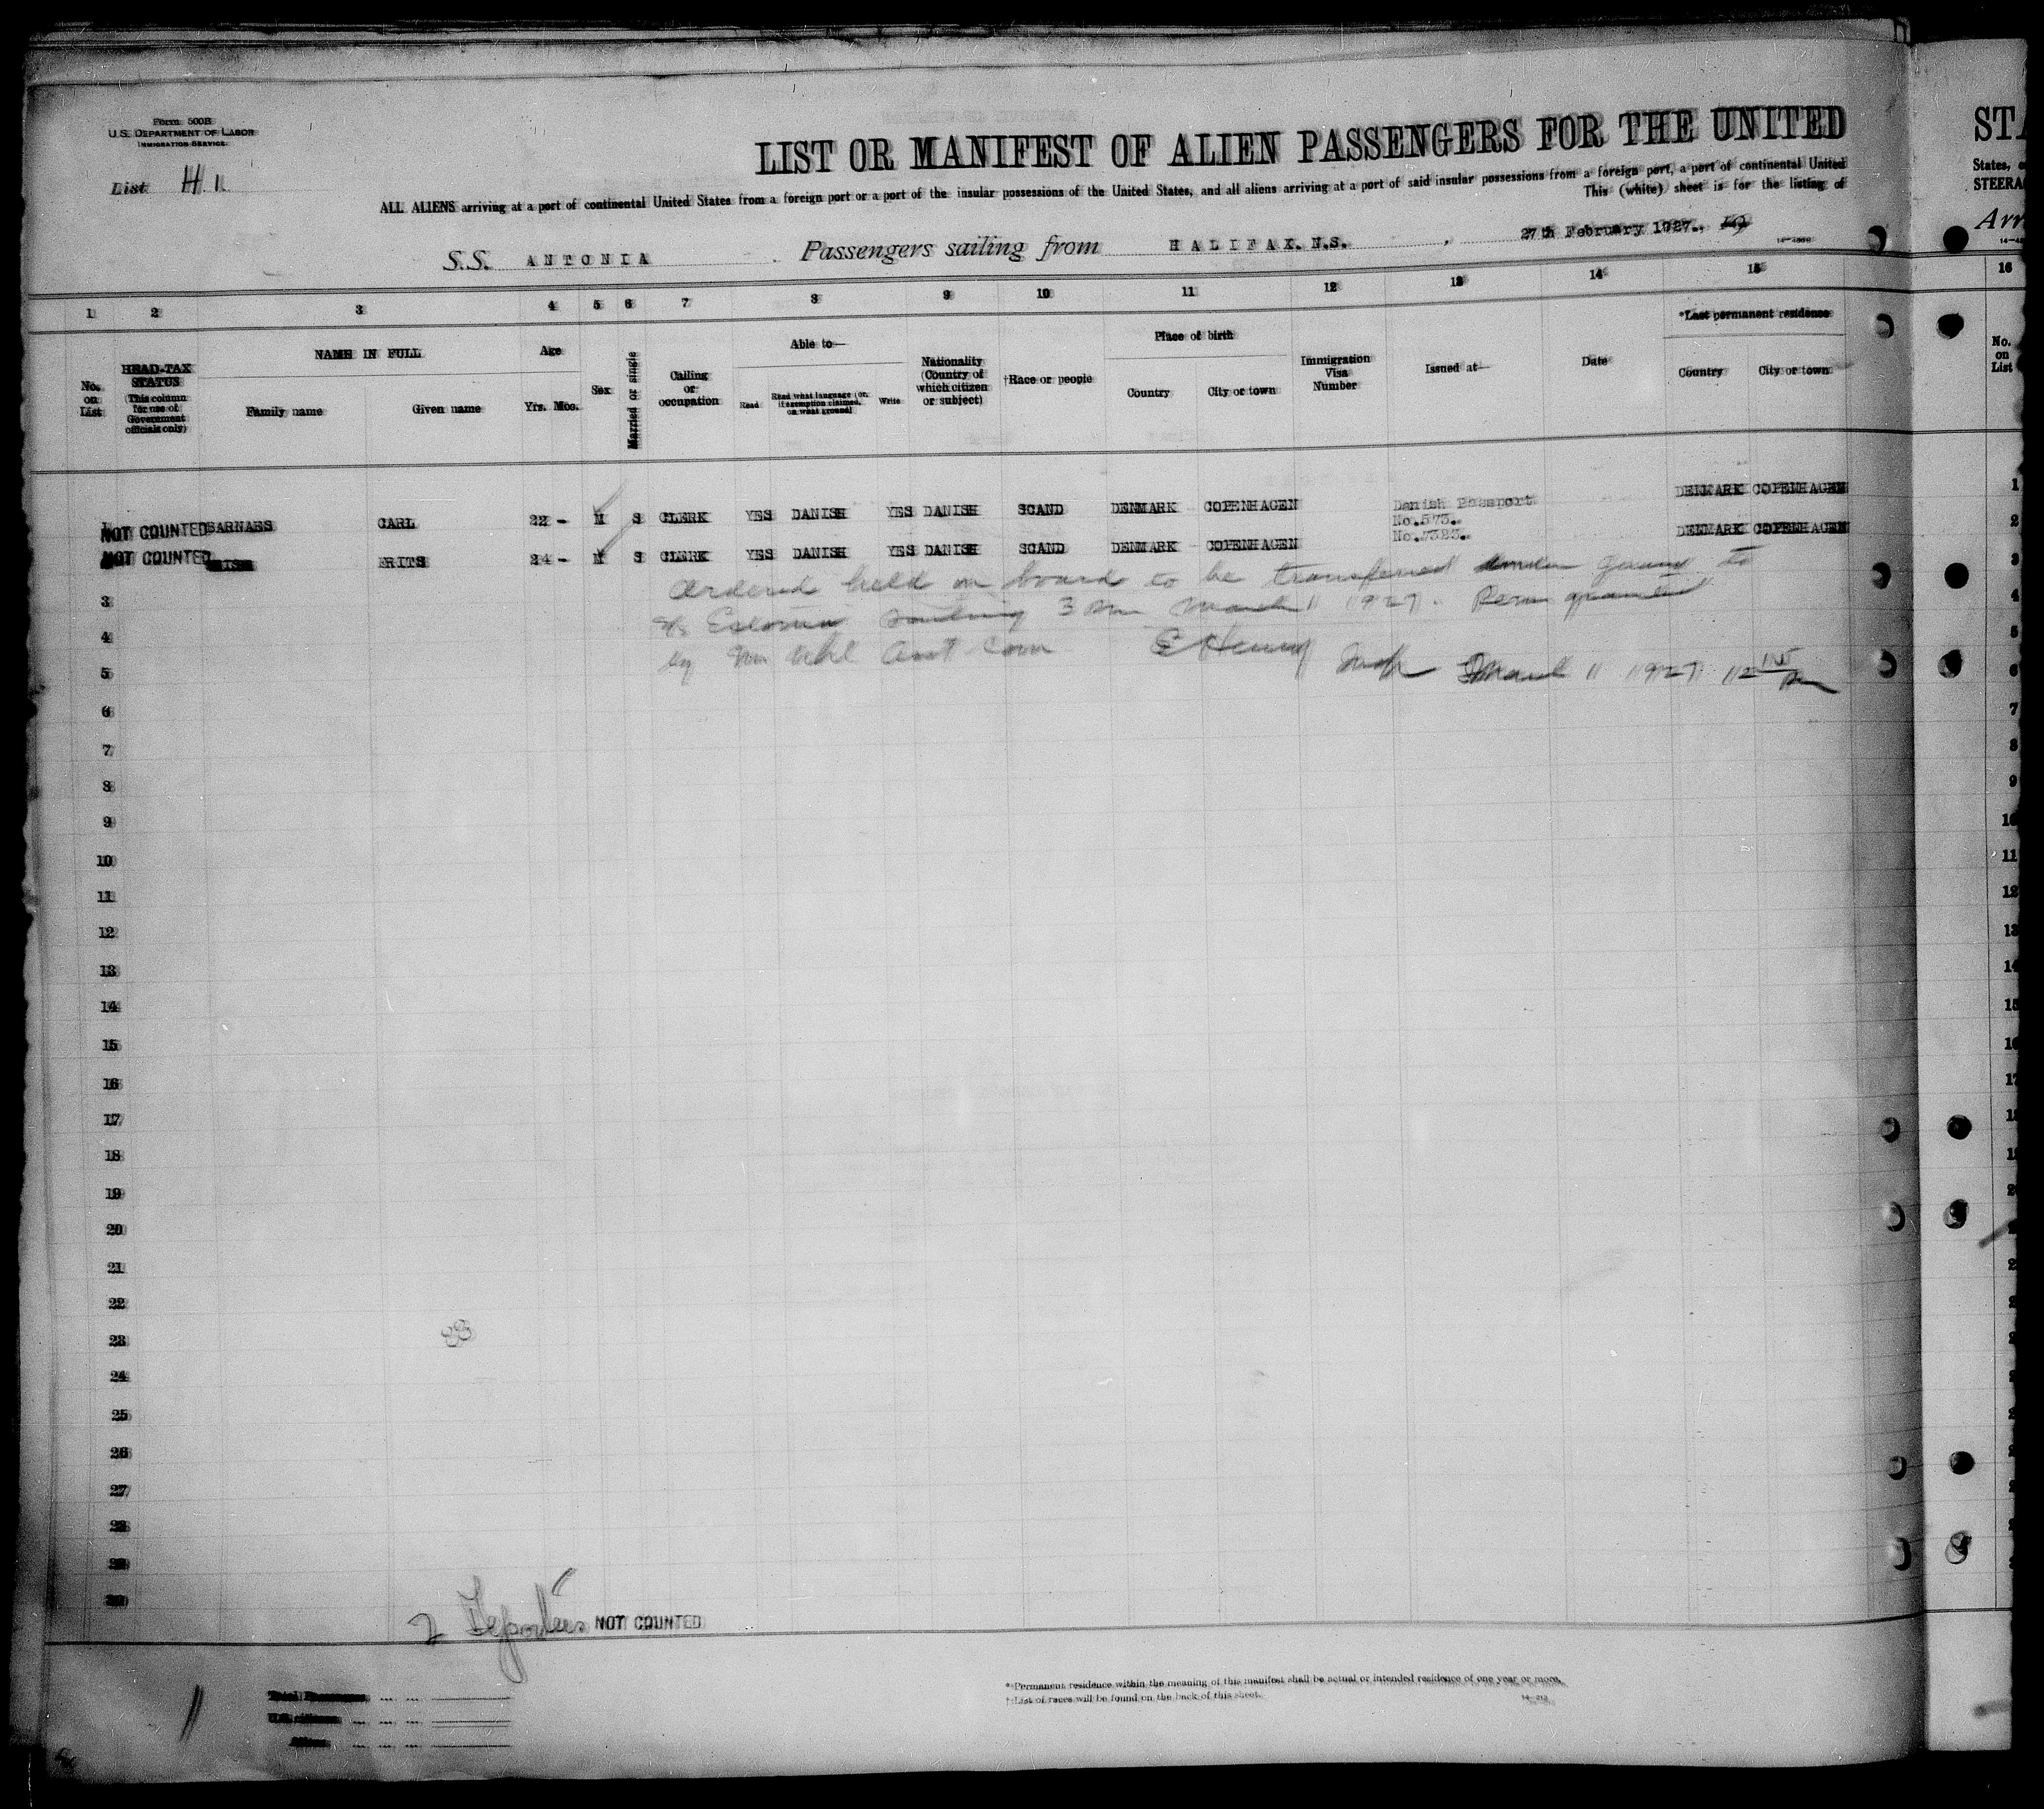 Form 500B
U.S. DEPARTMENT OF LABOR
IMMIGRATION SERVICE
List H 1
LIST OR MANIFEST OF ALIEN PASSENGERS FOR THE UNITED
ALL ALIENS arriving at a port of continental United States from a foreign port or a port of the insular possessions of the United States, and all aliens arriving at a port of said insular possessions from a foreign port, a port of continental United
This (white) sheet is for the listing of
S.S. ANTONIA Passengers sailing from HALIFAX. N.S. , 27th February 1927., 19
STA
States,
STEERA
Arr
1 2 3 4 5 6 7 8 9 10 11 12 13 14 15 16
No. on List
HEAD-TAX STATUS (This column for use of Government officials only)
NAME IN FULL
Family name Given name
Age
Yrs. Mos.
Sex
Married or single
Calling or occupation
Able to—
Read Read what language (or, if exemption claimed, on what ground) Write
Nationality (Country of which citizen or subject)
†Race or people
Place of birth
Country City or town
Immigration Visa Number
Issued at—
Date
*Last permanent residence
Country City or town
No. on List
NOT COUNTED BARNAES CARL 22 - M S CLERK YES DANISH YES DANISH SCAND DENMARK COPENHAGEN Danish Passport No.573. DENMARK COPENHAGEN
NOT COUNTED 24 - M S CLERK YES DANISH YES DANISH SCAND DENMARK COPENHAGEN No.7323. DENMARK COPENHAGEN
Ordered held on board to be transferred under guard to
sailing 3 PM March 1 1927. Perm granted
by Mr Uhl Asst Com E Henry Insp March 1 1927 12
3
4
5
6
7
8
9
10
11
12
13
14
15
16
17
18
19
20
21
22
23
24
25
26
27
28
29
30
2 NOT COUNTED
Total Passengers
U.S. citizens
Aliens
* Permanent residence within the meaning of this manifest shall be actual or intended residence of one year or more.
† List of races will be found on the back of this sheet.